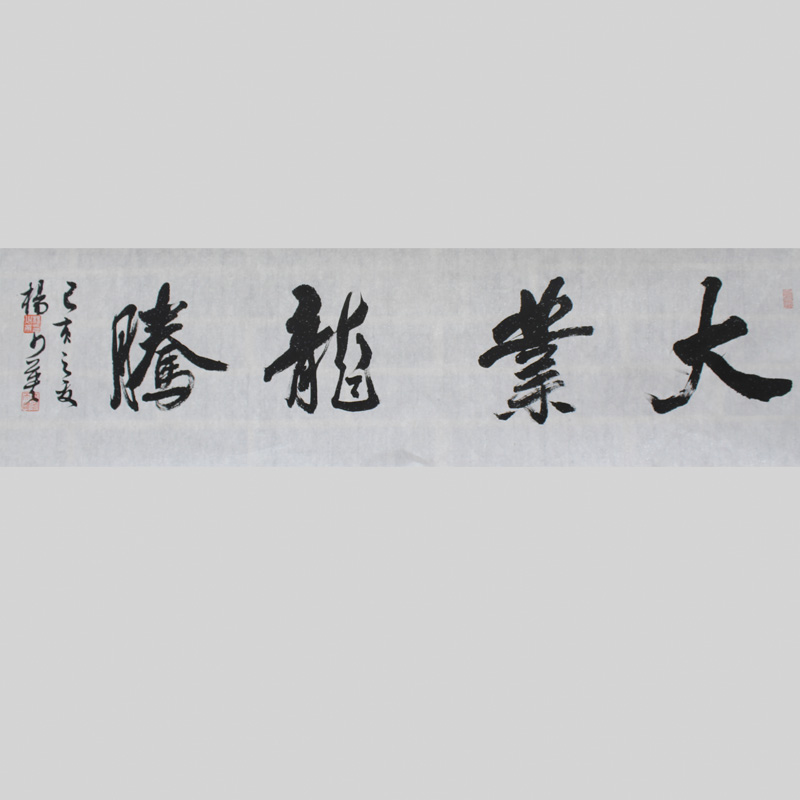 大業龍騰
己亥之夏
楊